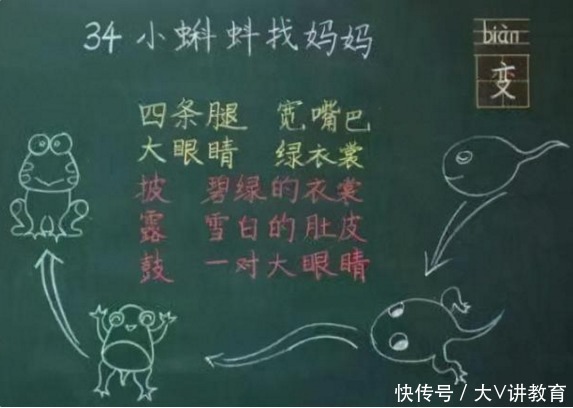 34 小蝌蚪找妈妈
biàn
变
四条腿 宽嘴巴
大眼睛 绿衣裳
披 碧绿的衣裳
露 雪白的肚皮
鼓 一对大眼睛
快传号 / 大V讲教育